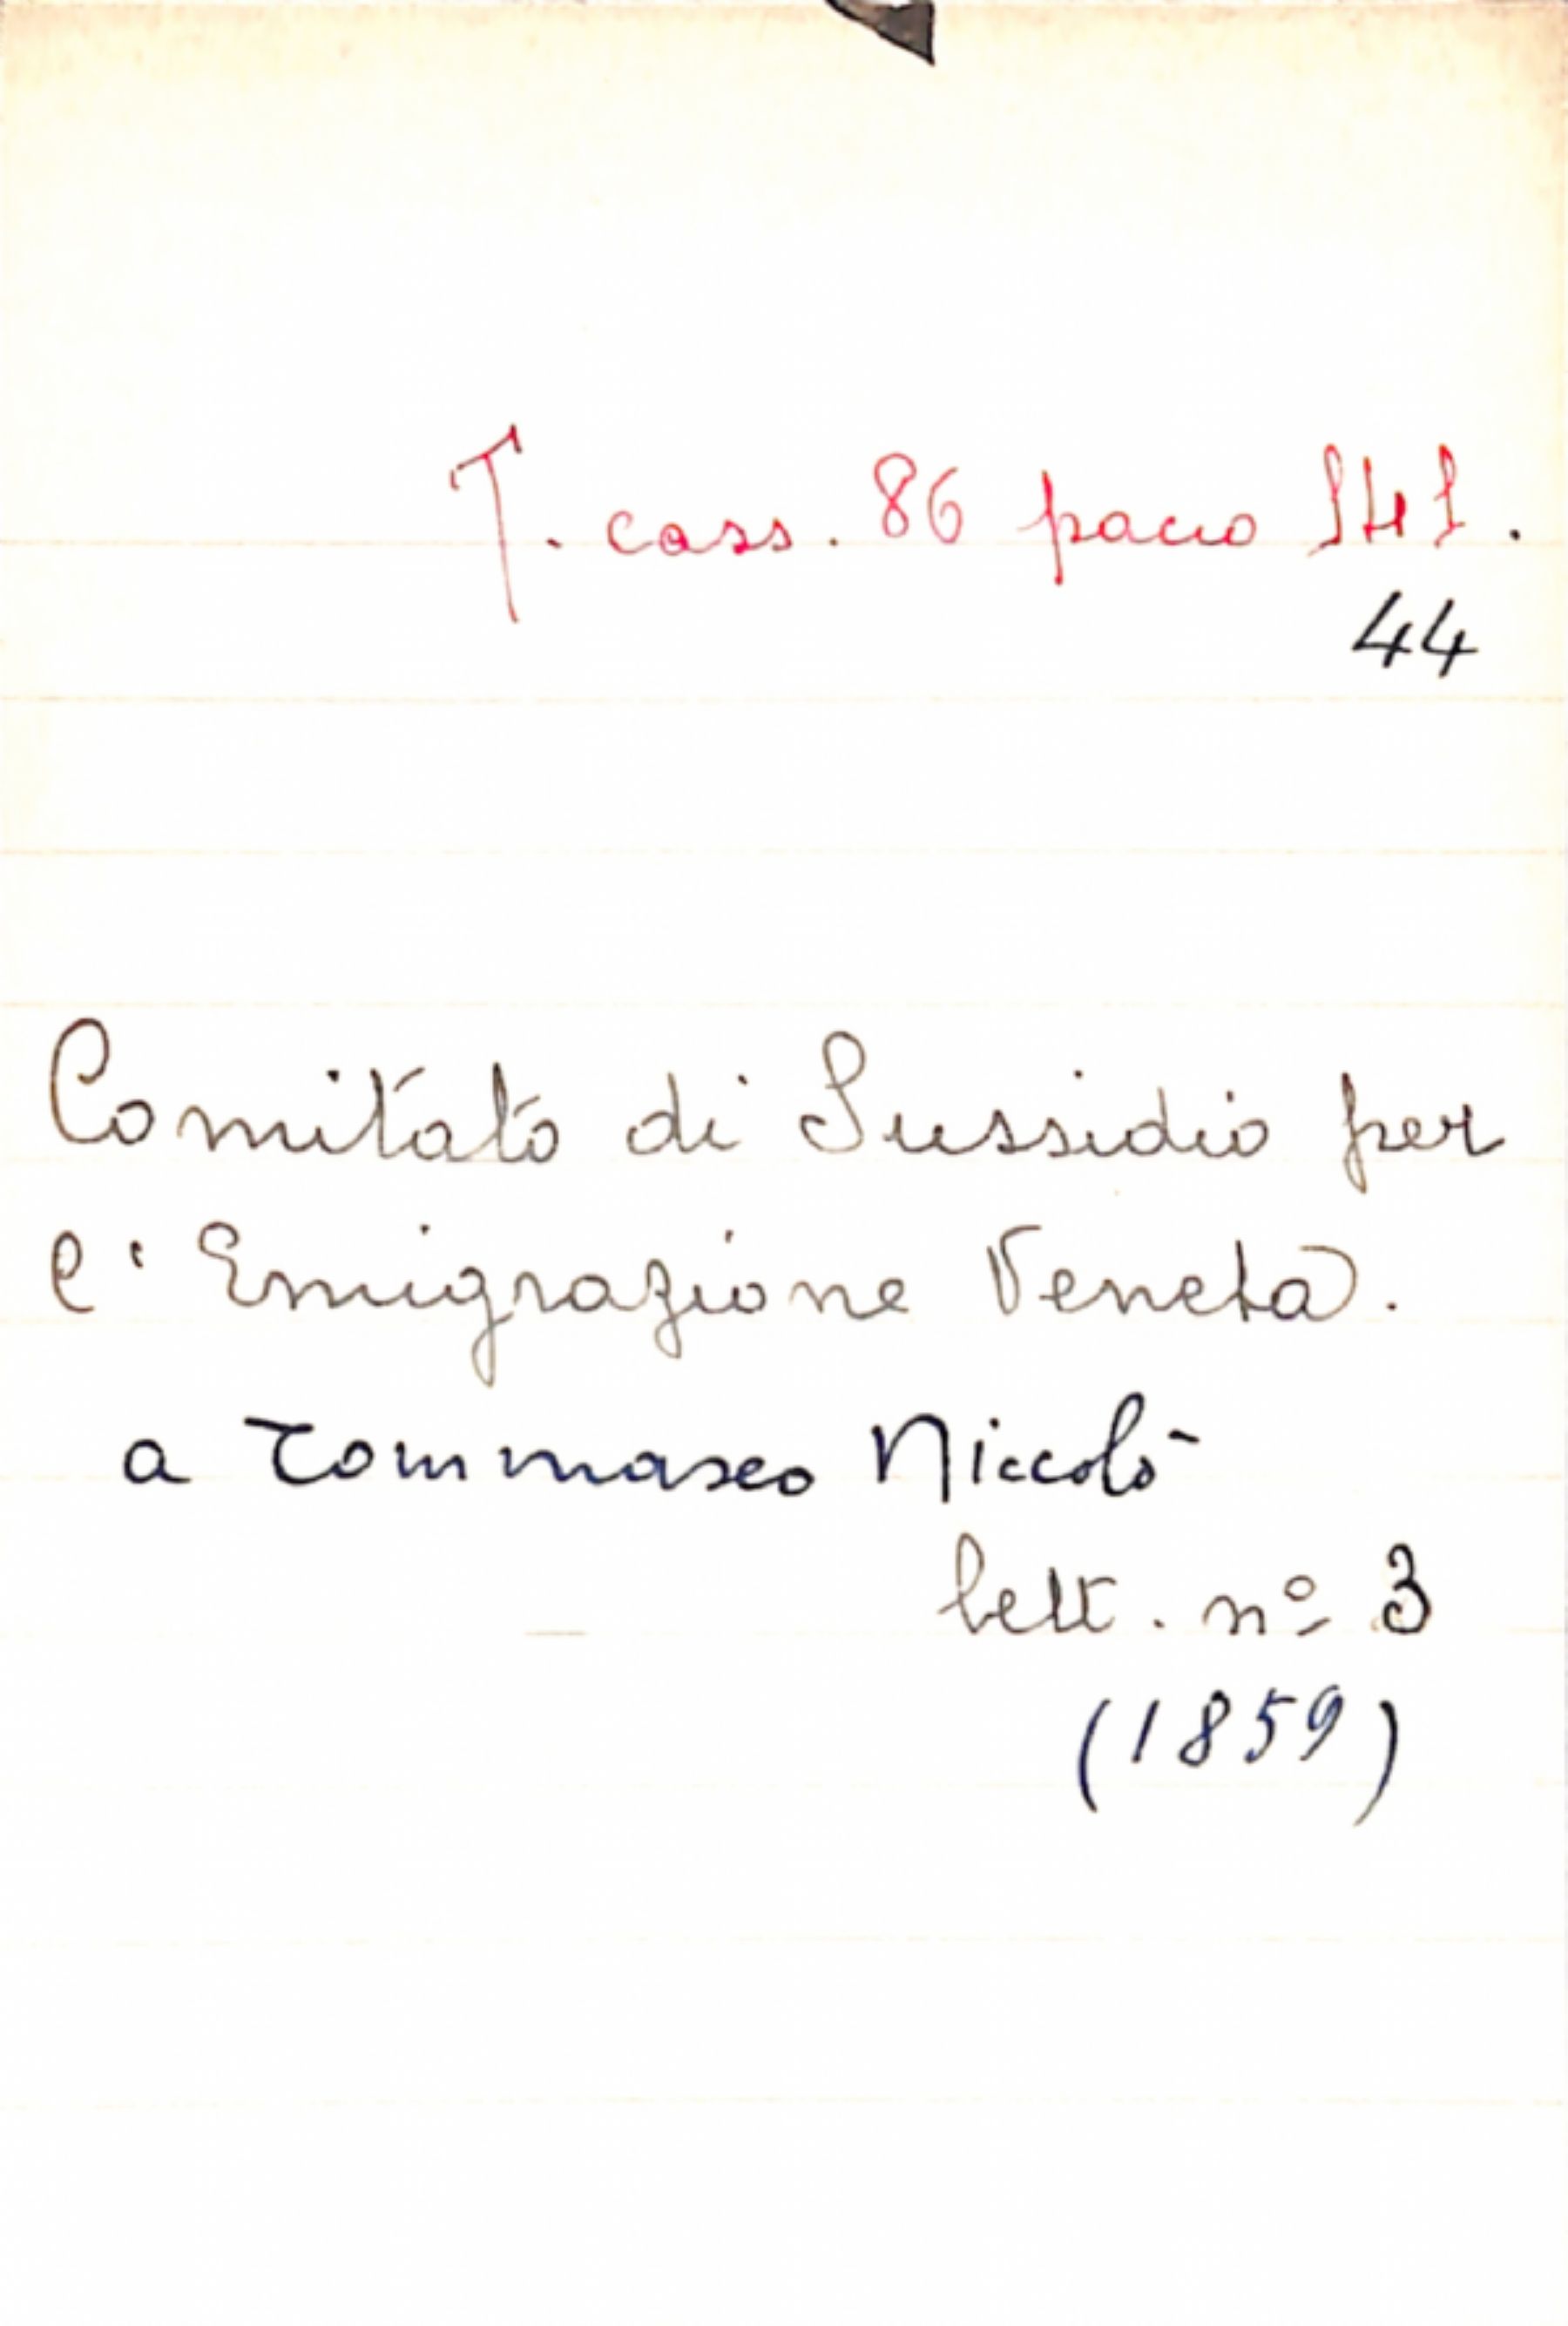 T. cass. 86 pacco 141.
44
Comitato di Sussidio per
l' Emigrazione Veneta.
a Tommaseo Niccolò
lett. nº 3
(1859)